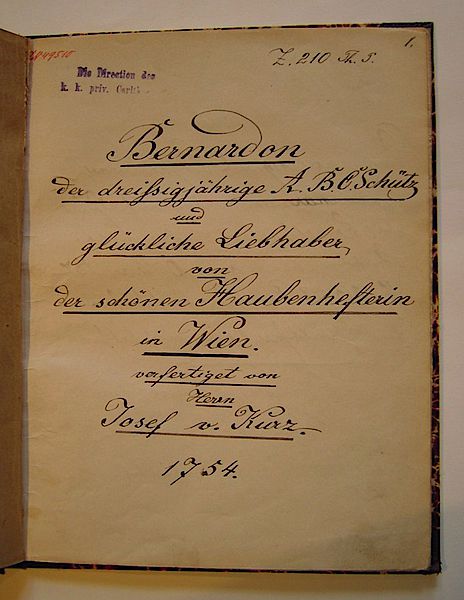 Z. 210 Th. S.
1.
Die Direction des
k. k. priv. Carlth
Bernardon
der dreissigjährige A. B. C. Schütz
und
glückliche Liebhaber,
von
der schönen Haubenhefterin
in Wien.
verfertiget von
Herrn
Josef v. Kurz.
1754.